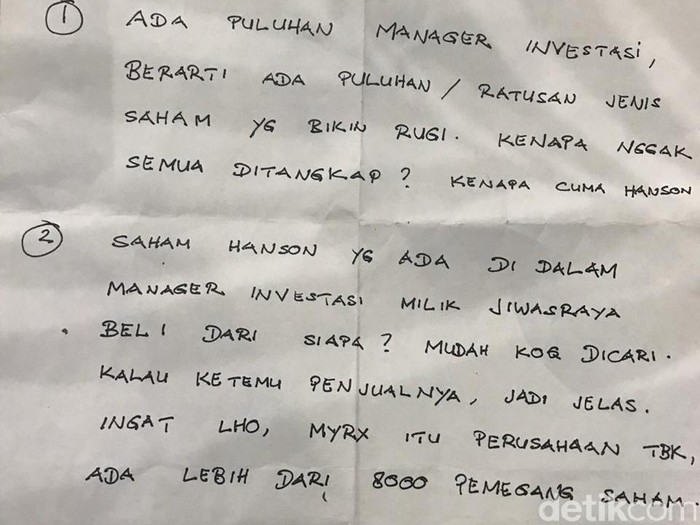 1 ADA PULUHAN MANAGER INVESTASI,
BERARTI ADA PULUHAN / RATUSAN JENIS
SAHAM YG BIKIN RUGI. KENAPA NGGAK
SEMUA DITANGKAP? KENAPA CUMA HANSON
2 SAHAM HANSON YG ADA DI DALAM
MANAGER INVESTASI MILIK JIWASRAYA
BELI DARI SIAPA? MUDAH KOG DICARI.
KALAU KETEMU PENJUALNYA, JADI JELAS.
INGAT LHO, MYRX ITU PERUSAHAAN TBK,
ADA LEBIH DARI 8000 PEMEGANG SAHAM.
detikcom